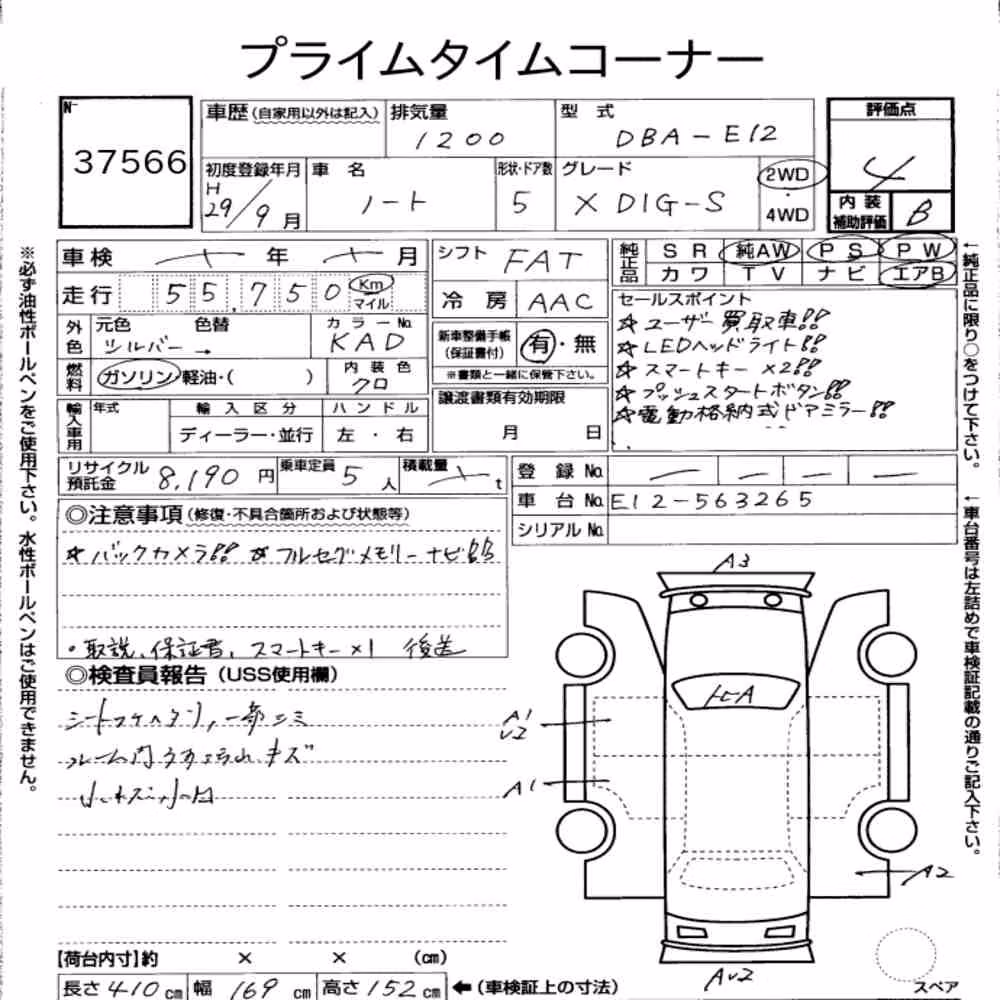 プライムタイムコーナー
No 37566
車歴(自家用以外は記入) 排気量 1200
型式 DBA-E12
評価点 4
初度登録年月 H29/9月
車名 ノート
形状・ドア数 5
グレード X DIG-S
2WD・4WD
内装補助評価 B
車検 年 月
走行 55,750 Km マイル
外色 元色 シルバー → 色替
カラーNo. KAD
燃料 ガソリン・軽油・( )
内装色 クロ
輸入車用 年式 輸入区分 ハンドル
ディーラー・並行 左・右
シフト FAT
冷房 AAC
新車整備手帳(保証書付) 有・無
※書類と一緒に保管下さい。
譲渡書類有効期限
月 日
純正品 SR 純AW PS PW
カワ TV ナビ エアB
セールスポイント
☆ユーザー買取車!!
☆LEDヘッドライト!!
☆スマートキー×2!!
☆プッシュスタートボタン!!
☆電動格納式ドアミラー!!
リサイクル預託金 8,190円 乗車定員 5人 積載量 t
登録No.
車台No. E12-563265
シリアルNo.
◎注意事項(修復・不具合箇所および状態等)
☆バックカメラ!! ☆フルセグメモリーナビ!!
・取説、保証書、スマートキー×1 後送
◎検査員報告(USS使用欄)
小キズ小凹
A3
A1
U2
A1
A2
AU2
スペア
【荷台内寸】約 × × (cm)
長さ 410cm 幅 169cm 高さ 152cm ←(車検証上の寸法)
※必ず油性ボールペンをご使用下さい。水性ボールペンはご使用できません。
←純正品に限り○をつけて下さい。
←車台番号は左詰めで車検証記載の通りご記入下さい。